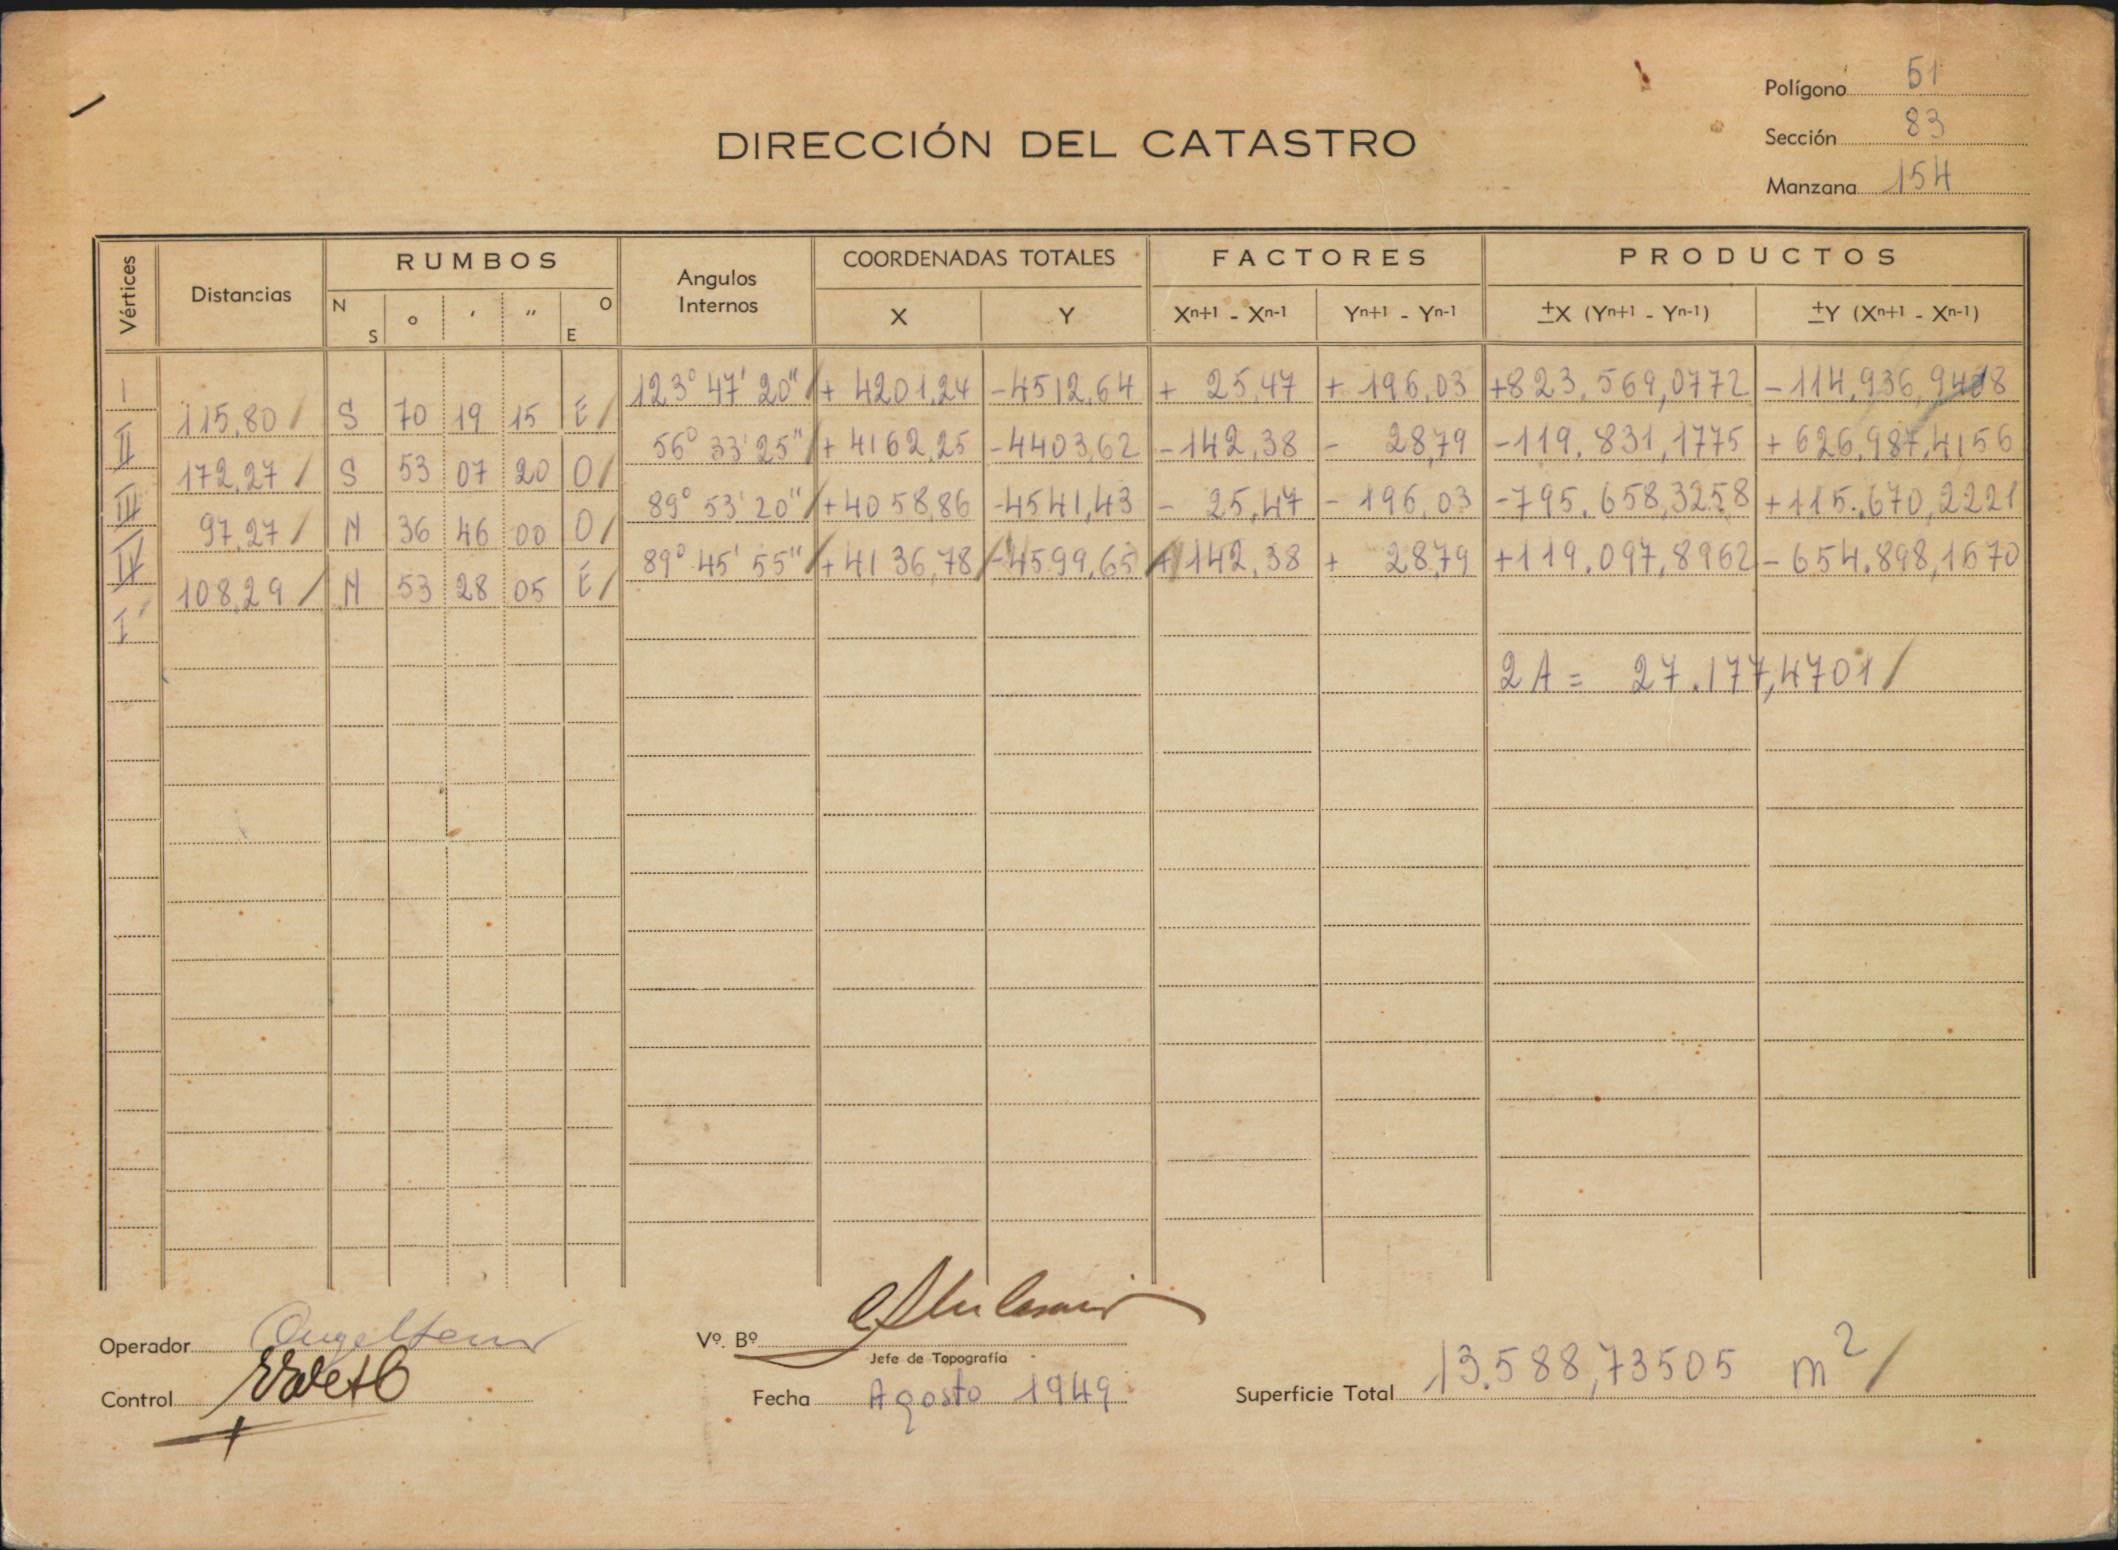 Polígono 51
DIRECCIÓN DEL CATASTRO
Sección 83
Manzana 154
Vértices Distancias RUMBOS Angulos Internos COORDENADAS TOTALES FACTORES PRODUCTOS
N S ° ' " O E X Y Xn+1 - Xn-1 Yn+1 - Yn-1 ±X (Yn+1 - Yn-1) ±Y (Xn+1 - Xn-1)
I 123° 47' 20" + 4201,24 -4512,64 + 25,47 + 196,03 +823.569,0772 -114.936,9408
115,80 S 70 19 15 E
II 56° 33' 25" + 4162,25 -4403,62 -142,38 - 28,79 -119.831,1775 +626.987,4156
172,27 S 53 07 20 O
III 89° 53' 20" +4058,86 -4541,43 - 25,47 - 196,03 -795.658,3258 +115.670,2221
97,27 N 36 46 00 O
IV 89° 45' 55" +4136,78 -4599,65 +142,38 + 28,79 +119.097,8962 -654.898,1670
108,29 N 53 28 05 E
I
2A = 27.177,4701
Operador
Vº. Bº
Jefe de Topografía
Control
Fecha Agosto 1949
Superficie Total 13.588,73505 m2